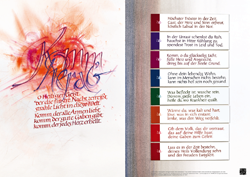 Komm
Heil'ger Geist
o Heil'ger Geist,
der die finstre Nacht zerreißt,
strahle Licht in diese Welt.
Komm, der alle Armen liebt,
komm, der gute Gaben gibt,
komm, der jedes Herz erhellt.
Höchster Tröster in der Zeit,
Gast, der Herz und Sinn erfreut,
köstlich Labsal in der Not.
In der Unrast schenkst du Ruh,
hauchst in Hitze Kühlung zu,
spendest Trost in Leid und Tod.
Komm, o du glückselig Licht,
fülle Herz und Angesicht,
dring bis auf der Seele Grund.
Ohne dein lebendig Wehn
kann im Menschen nichts bestehn,
kann nichts heil sein noch gesund.
Was befleckt ist, wasche rein,
Dürrem gieße Leben ein,
heile du, wo Krankheit quält.
Wärme du, was kalt und hart,
löse, was in sich erstarrt,
lenke, was den Weg verfehlt.
Gib dem Volk, das dir vertraut,
das auf deine Hilfe baut,
deine Gaben zum Geleit.
Lass es in der Zeit bestehn,
deines Heils Vollendung sehn
und der Freuden Ewigkeit.